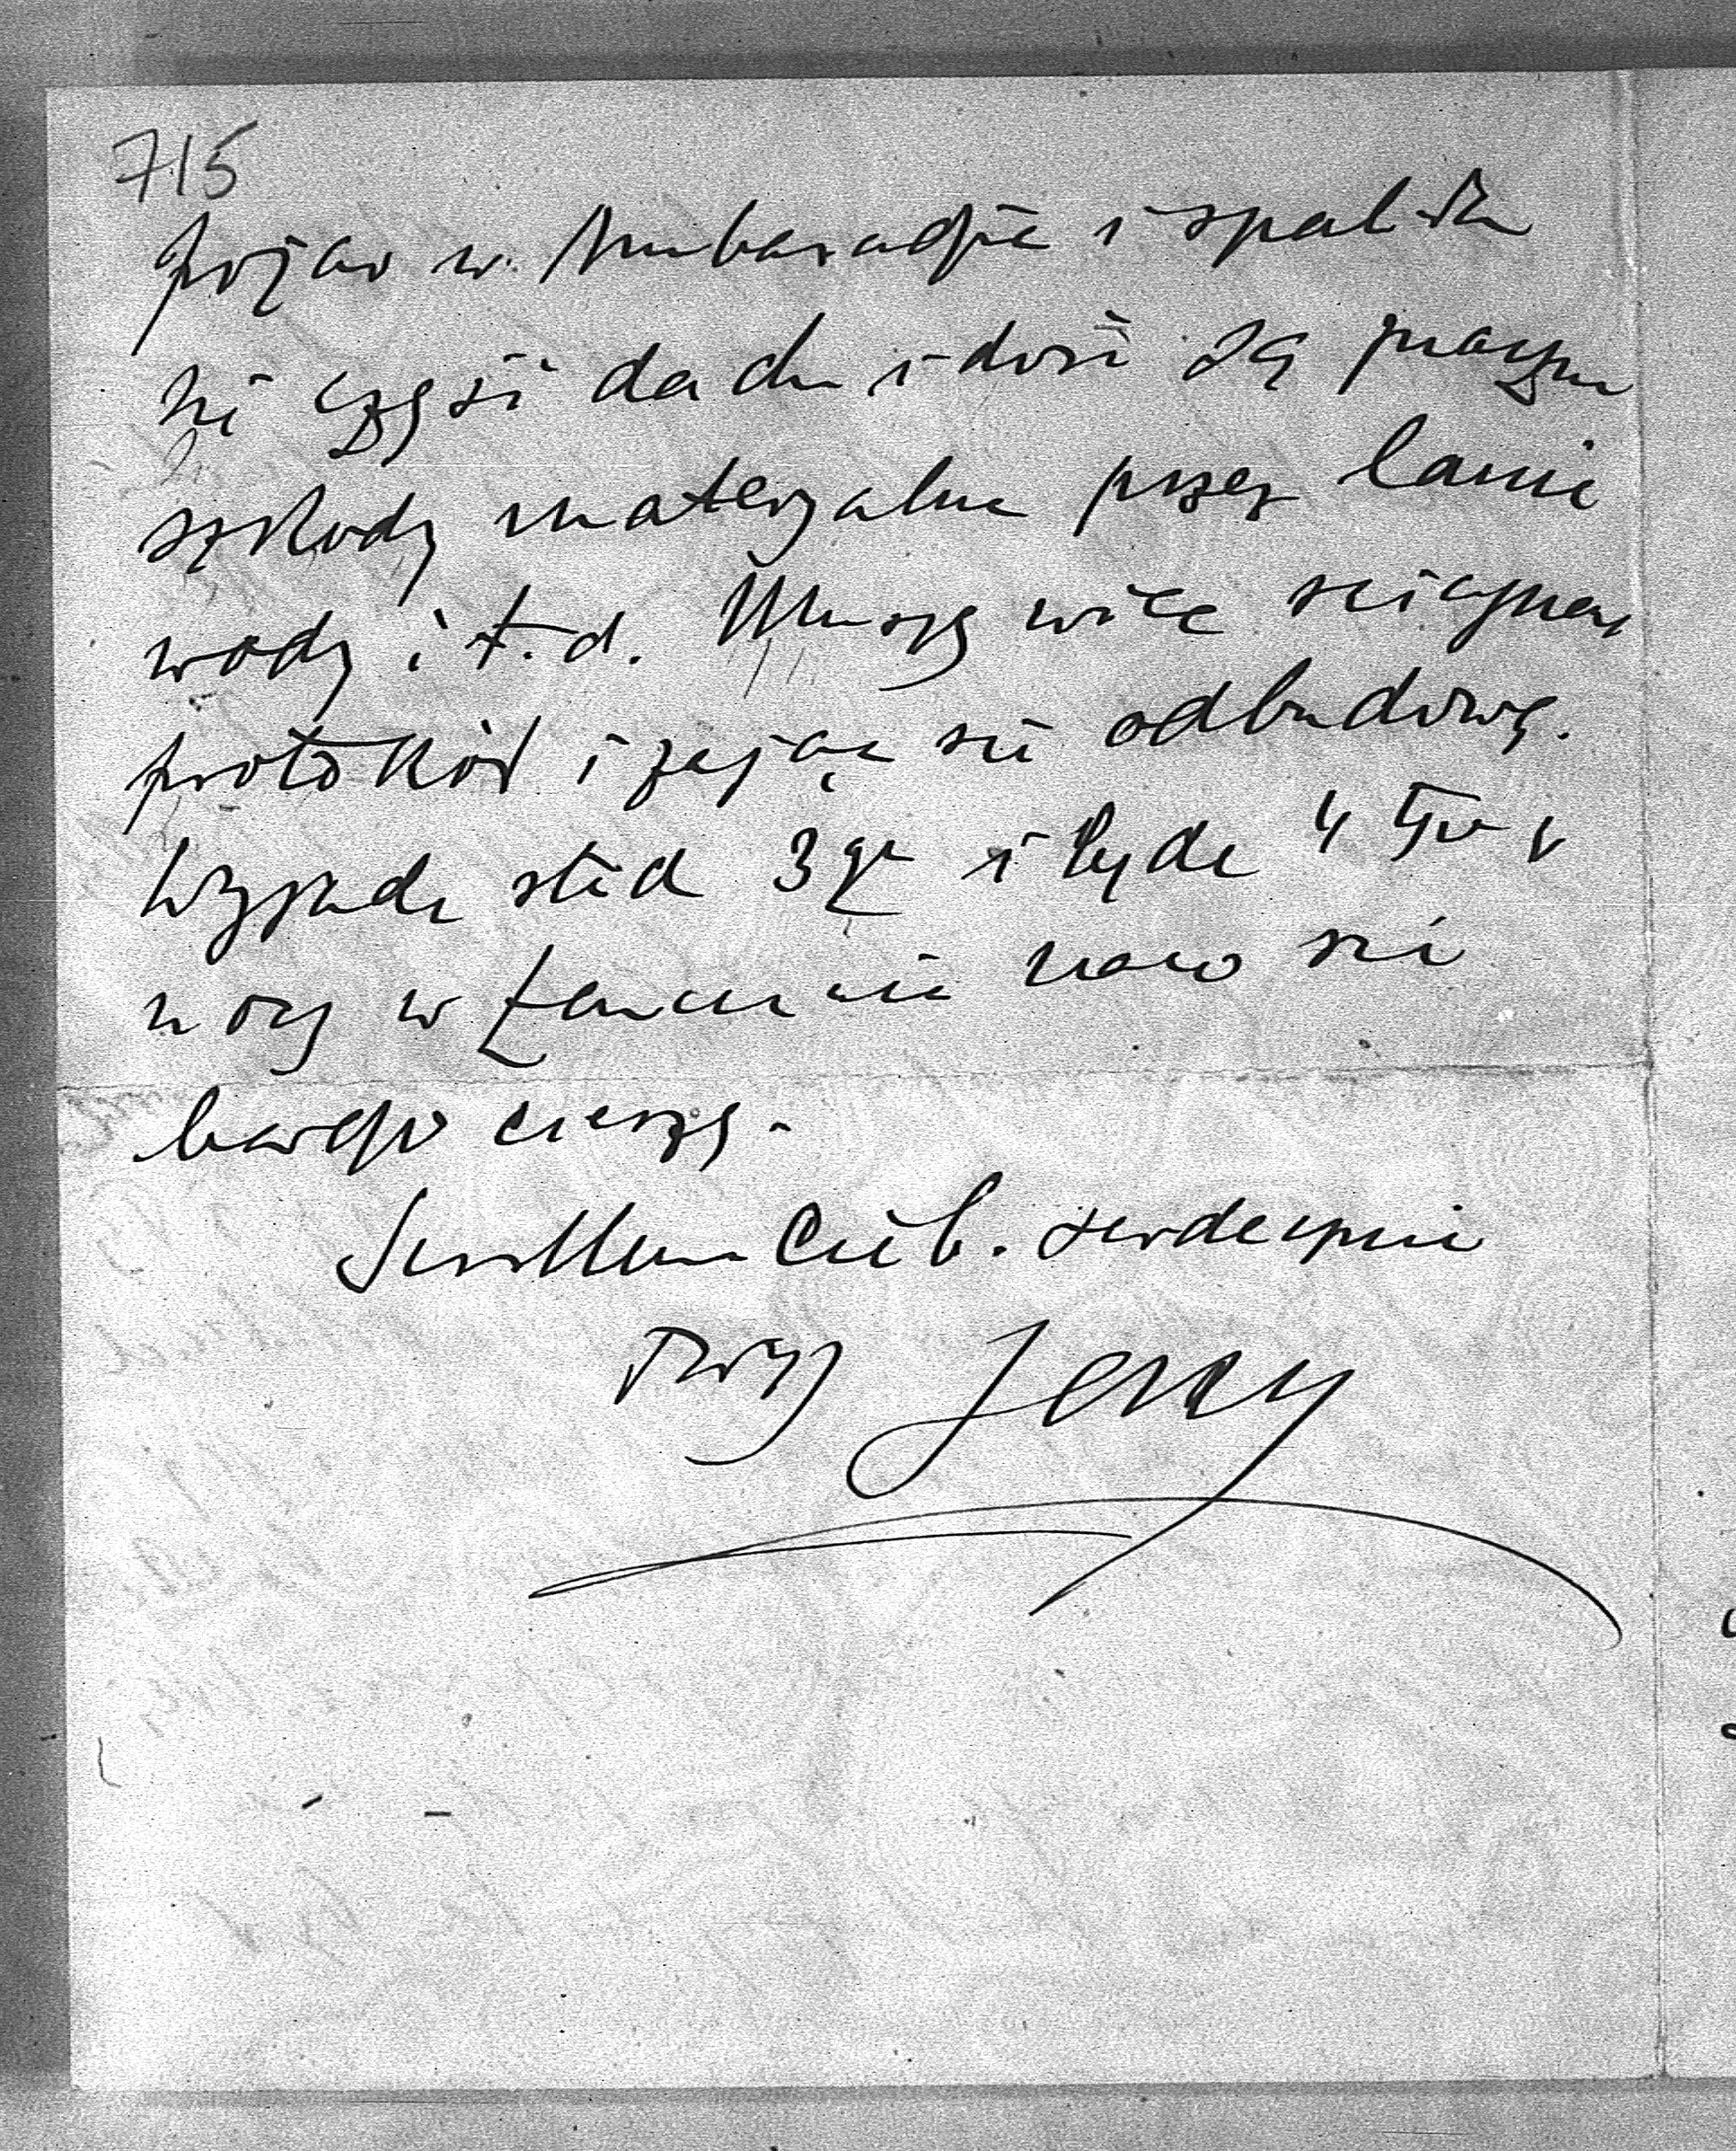 715
pożar w Ambasadzie i spaliła
się część dachu i dość są znaczne
szkody materyalne przez lanie
wody i t.d. Muszę więc ściągnąć
protokół i zająć się odbudową.
Wyjadę stąd 3go i będę 4go
w nocy w Łańcucie na co się
bardzo cieszę.
Ściskam Cię b. serdecznie
Twój Jerzy